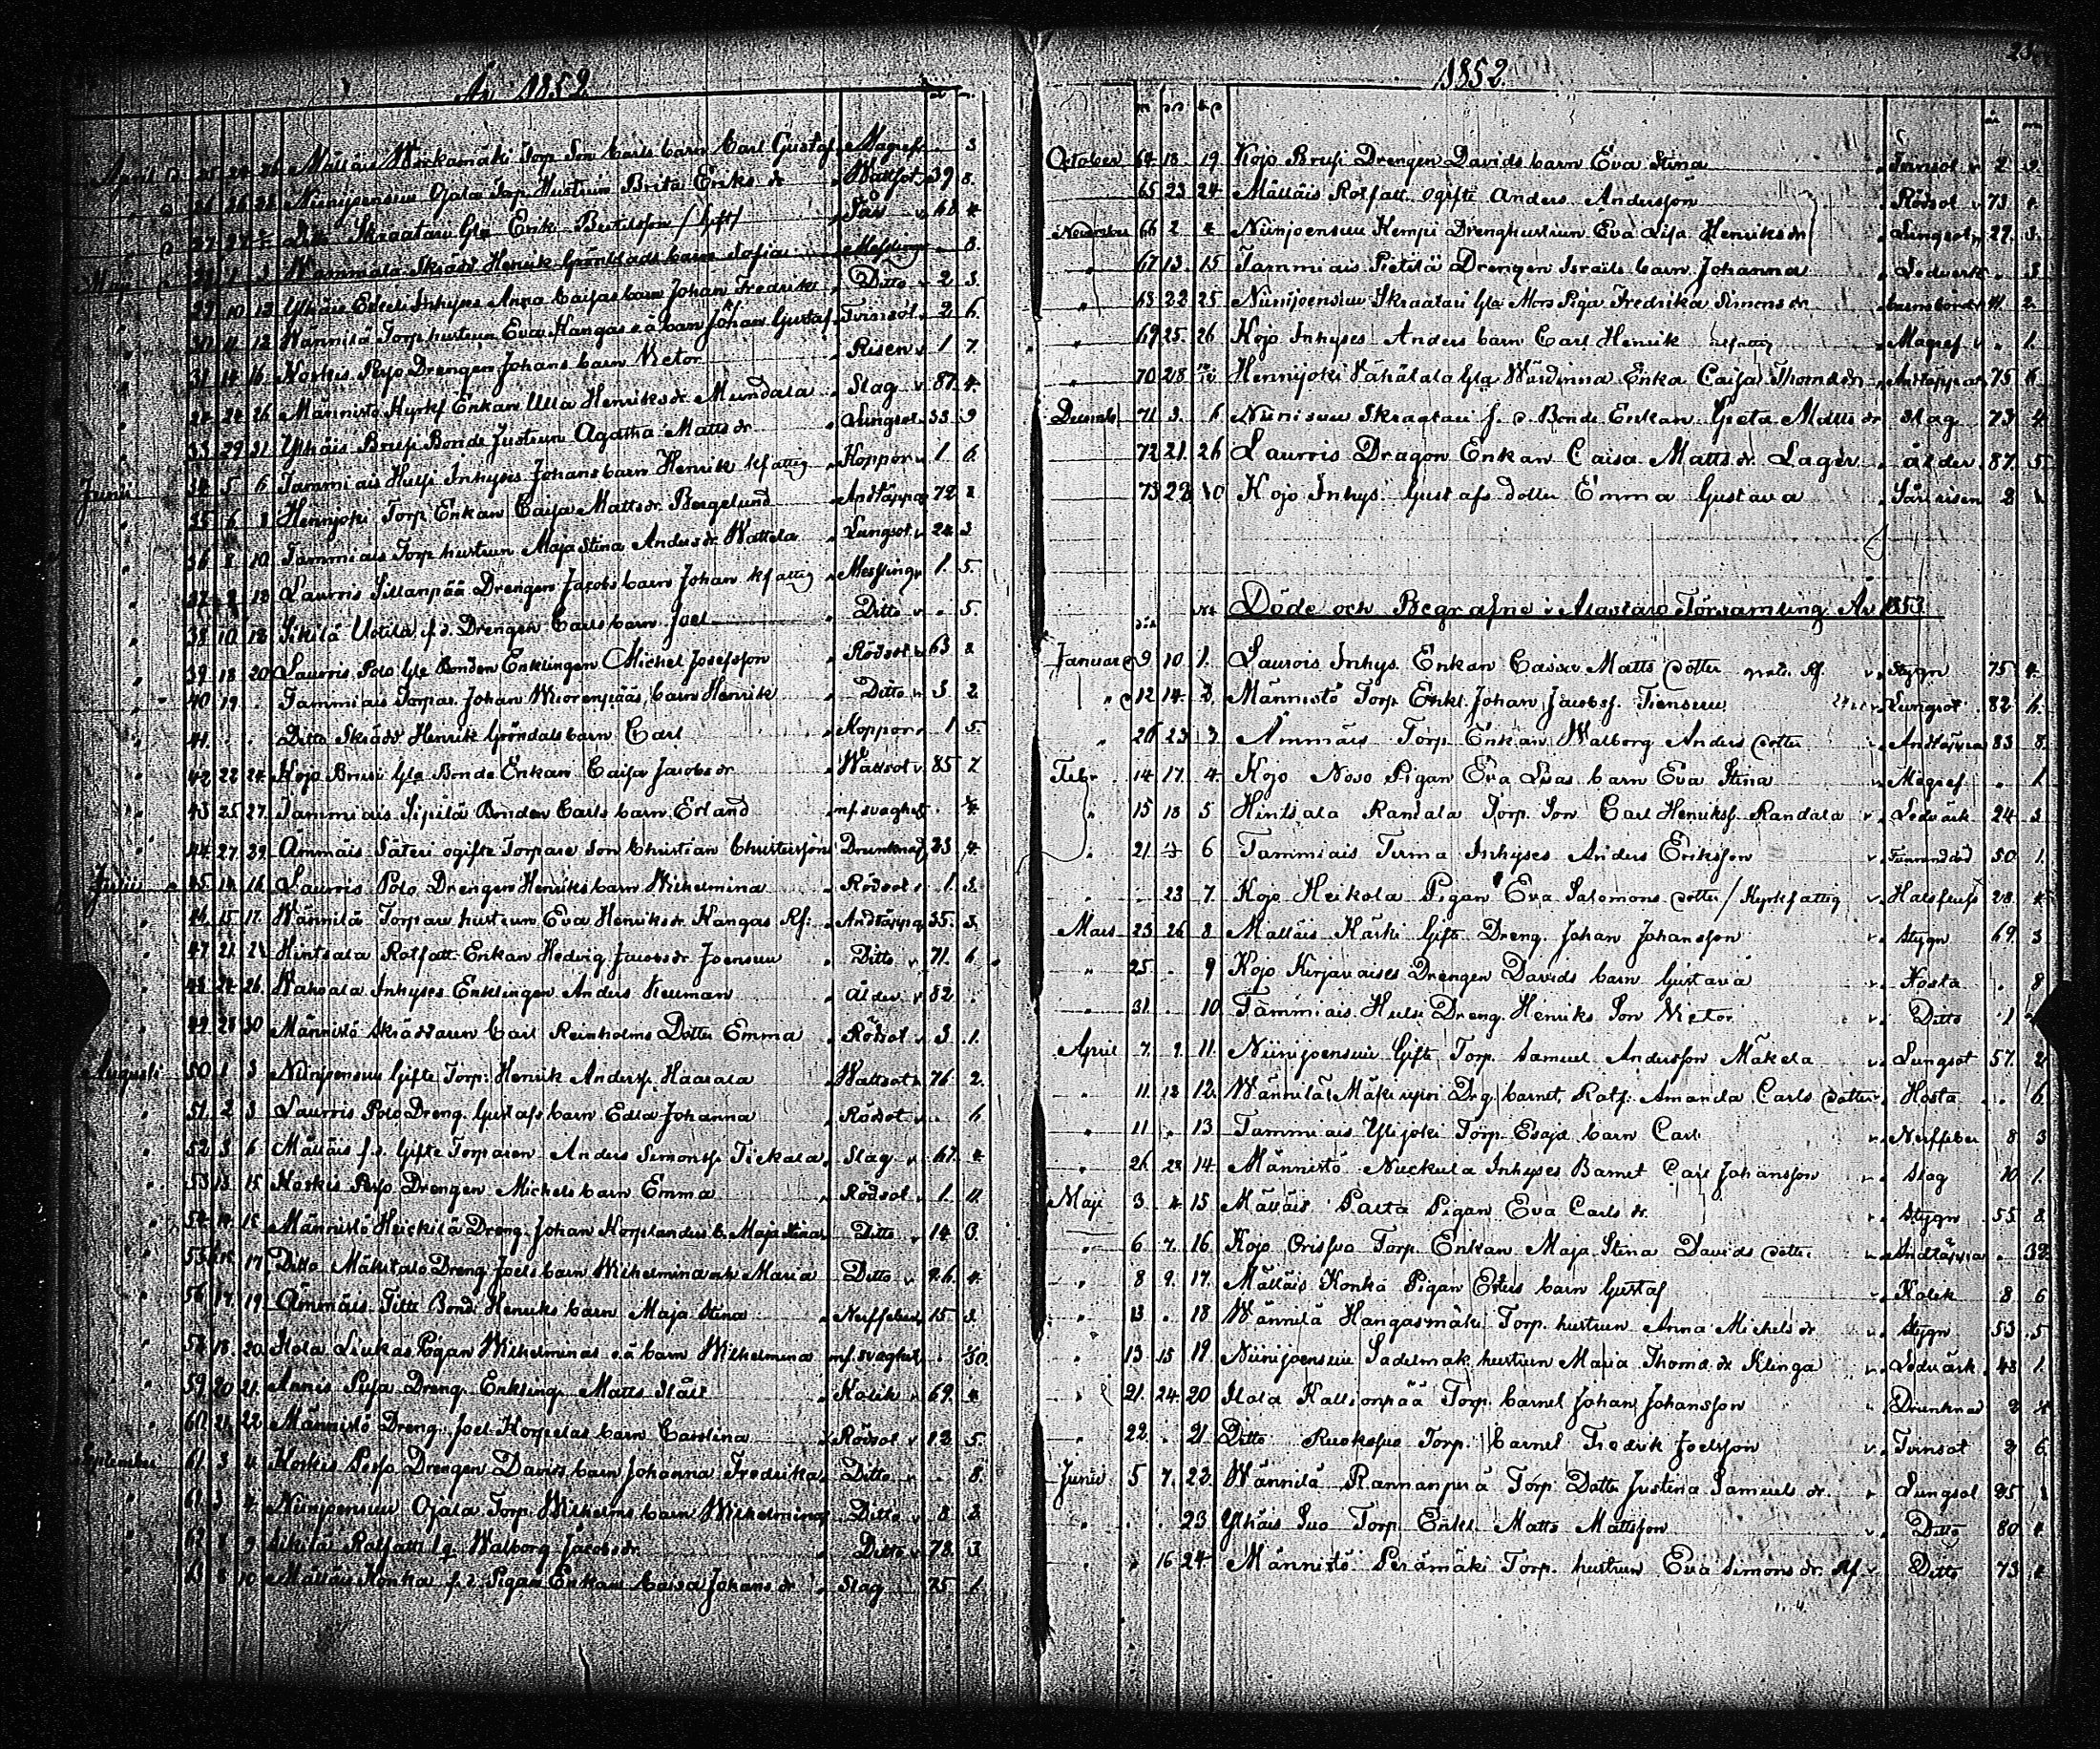 År 1852
April 25 24 26 Mälläis Wirkamäki Torp Son Carls barn Carl Gustaf Magref 3
26 26 28 Niinijoensuu Ojala Torp Hustrun Brita Eriks dr Wattsot 39 8
27 27 Ditto Skraatari Gla Erik Bertilsson /gift/ Sår 68 4
Maji 28 1 3 Wammala Skrädd Henrik Gröndals barn Sofia Messling 8
29 10 13 Ylhäis Eskeli Inhyses Anna Caisas barn Johan Fredrik Ditto 2 3
30 11 12 Wännilä Torp hustrun Eva Kangas o ä barn Johan Gustaf Tvinsot 2 6
31 14 16 Horkis Perjo Drengen Johans barn Victor Risen 1 7
24 26 Männistö Kyrkf Enkan Ulla Henriksdr Mundala Slag 87 4
33 29 31 Ylhäis Brusi Bonde Justrun Agatha Matts dr Lungsot 33 9
Junii 34 5 6 Tammiais Hulsi Inhyses Johans barn Henrik Kfattig Koppor 1 6
35 6 8 Hennijoki Torp Enkan Caisa Mattsdr Bergelund Andtäppa 72 8
36 8 10 Tammiais Torp hustrun Maja Stina Andersdr Wattela Lungsot 24 3
37 8 13 Laurois Sillanpää Drengen Jacobs barn Johan kfattig Messling 1 5
38 10 13 Sikilä Uotila f.d. Drengen Carls barn Joel Ditto 5
39 18 20 Laurois Polo Gle Bonden Enklingen Michel Josefsson Rödsot 63 8
40 19 Tammiais Torpar Johan Wuorenpääs barn Henrik Ditto 3 2
41 Ditto Skrädd Henrik Gröndals barn Carl Koppor 1 5
42 22 24 Kojo Brusi Gla Bonde Enkan Caisa Jacobsdr Wattsot 85 7
43 25 27 Tammiais Sipilä Bonden Carls barn Erland mf. svaghet
44 27 29 Ämmäis Säteri ogifte Torpare Son Christian Christersson Drunknad 33 4
Julii 45 14 16 Laurois Polo Drengen Henriks barn Wilhelmina Rödsot 1 3
46 15 17 Wännilä Torpare hustrun Eva Henriksdr Kangas Kf: Andtäppa 35 3
47 21 Hintsala Rotfatt. Enkan Hedvig Jacobsdr Joensuu Ditto 71 6
48 24 26 Wahvala Inhyses Enklingen Anders Neuman Ålder 82
49 28 30 Männistö Skräddaren Carl Reinholms Dotter Emma Rödsot 3 1
Augusti 50 1 3 Niinijoensuu Gifte Torp: Henrik Anderss. Haarala Wattsot 76 2
51 2 3 Laurois Polo Dreng. Gustafs barn Edla Johanna Rödsot 6
52 3 6 Mälläis f.d. Gifte Torparen Anders Simonss. Tiekala Slag 67 4
53 13 15 Horkis Perjo Drengen Michels barn Emma Rödsot 1 11
54 14 16 Männistö Heickilä Dreng. Johan Korplanders b. Maja Stina Ditto 14 3
55 15 17 Ditto Mäkitalo Dreng Joels barn Wilhelmina och Maria Ditto 4
56 17 19 Ämmäis Titti Bond. Henriks barn Maja Stina Nerffeber 15 3
58 18 20 Kola Liukas Pigan Wilhelminas o.ä barn Wilhelmina mf. svaghet
59 20 21 Annis Pusa Dreng. Enkling. Matts Stål Kolik 69 4
60 21 22 Männistö Dreng. Joel Korpelas barn Carolina Rödsot 13 5
September 61 3 4 Horkis Perjo Drengen Davids barn Johanna Fredrika Ditto 8
61 3 4 Niinijoensuu Ojala Torp. Wilhelms barn Wilhelmina Ditto 8 8
62 8 9 Sikilä Rotfatti lg. Walborg Jacobsdr Ditto 78 3
63 8 10 Mälläis Konka f.d. Pigan Enkan Caisa Johans dr Slag 75 1
1852.
October 64 18 19 Kojo Brusi Drengen Davids barn Eva Stina Tvinsot 2 9
65 23 24 Mälläis Rotfatt. ogifte Anders Andersson Rödsot 73 4
November 66 2 4 Niinijoensuu Kempi Drenghustrun Eva Lisa Henriksdr Lungsot 27 3
67 13 15 Tammiais Pietilä Drengen Israels barn Johanna Ledverk 3
68 22 25 Niinijoensuu Skraatari Gla Mors Piga Fredrika Simons dr barnsbörd 41 2
69 25 26 Kojo Inhyses Anders barn Carl Henrik Magref 1
70 28 Hennijoki Vähätalo Gla Wärdinna Enka Caisa Thomasdr Andtäppa 75 6
Decemb. 71 3 6 Niinisuu Skraatari f.d. Bonde Enkan Greta Matts dr Slag 73 4
72 21 26 Laurois Dragon Enkan Caisa Matts dr Lager ålder 87 5
73 28 30 Kojo Inhys. Gustafs dotter Emma Gustava Särrisen 2
Döde och Begrafne i Alastaro Församling År 1853
Januar 9 10 1. Laurois Inhys. Enkan Caisa Matts dotter Stygn 75 4
12 14 2. Männistö Torp Enkl. Johan Jacobss. Tiensuu Lungsot 82 6
20 23 3 Ämmäis Torp Enkan Walborg Anders dotter Andtäppa 83 8
Febr. 14 17 4 Kojo Noso Pigan Eva Lisas barn Eva Stina Magref 1
15 18 5 Hintsala Randala Torp. Son Carl Henrikss. Randala Ledvärk 24 3
21 6 Tammiais Tirma Inhyses Anders Eriksson 50 1
23 7 Kojo Heikola Pigan Eva Salomons dotter /Kyrkfattig Halsfluss 28 4
Mars 23 26 8 Mälläis Kärki Gift Dreng. Johan Johansson Stygn 69 3
25 9 Kojo Kirjavaises Drengen Davids barn Gustava Hosta 8
31 10 Tammiais Hulsi Dreng Henriks Son Victor Ditto 1
April 7 9 11 Niinijoensuu Gifte Torp. Samuel Andersson Mäkelä Lungsot 57 2
11 13 12 Wännilä Mäkirupi Drg. barnet Rotf. Amanda Carls dotter Hosta 6
11 13 Tammiais Ylijoki Torp. Esajas barn Carl Nerffeber 8 3
26 28 14 Männistö Nuckula Inhyses Barnet Carl Johansson Slag 10 1
Maji 3 4 15 Mälläis Parta Pigan Eva Carls dr Stygn 55 8
6 7 16 Kojo Orisuo Torp. Enkan Maja Stina Davids dotter Andtäppa 32
8 9 17 Mälläis Konka Pigan Esters barn Gustaf Kolik 8 6
13 18 Wännilä Hangasmäki Torp. hustrun Anna Michels dr Stygn 53 5
13 15 19 Niinijoensuu Sadelmak. hustrun Maria Thoma dr Klinga Ledvärk 43 1
21 24 20 Kallionpää Torp barnet Johan Johansson Drunknad 3 4
22 21 Ditto Ruokosuo Torp. barnet Fredrik Joelsson Tvinsot 2 6
Junii 5 7 22 Wännilä Rannanperä Torp Dotter Justina Samuels dr. Lungsot 25
23 Ylhäis Suo Torp Enkl. Matts Mattsson Ditto 80 4
16 24 Männistö Perämäki Torp. hustrun Eva Simons dr. Kf. Ditto 73 4